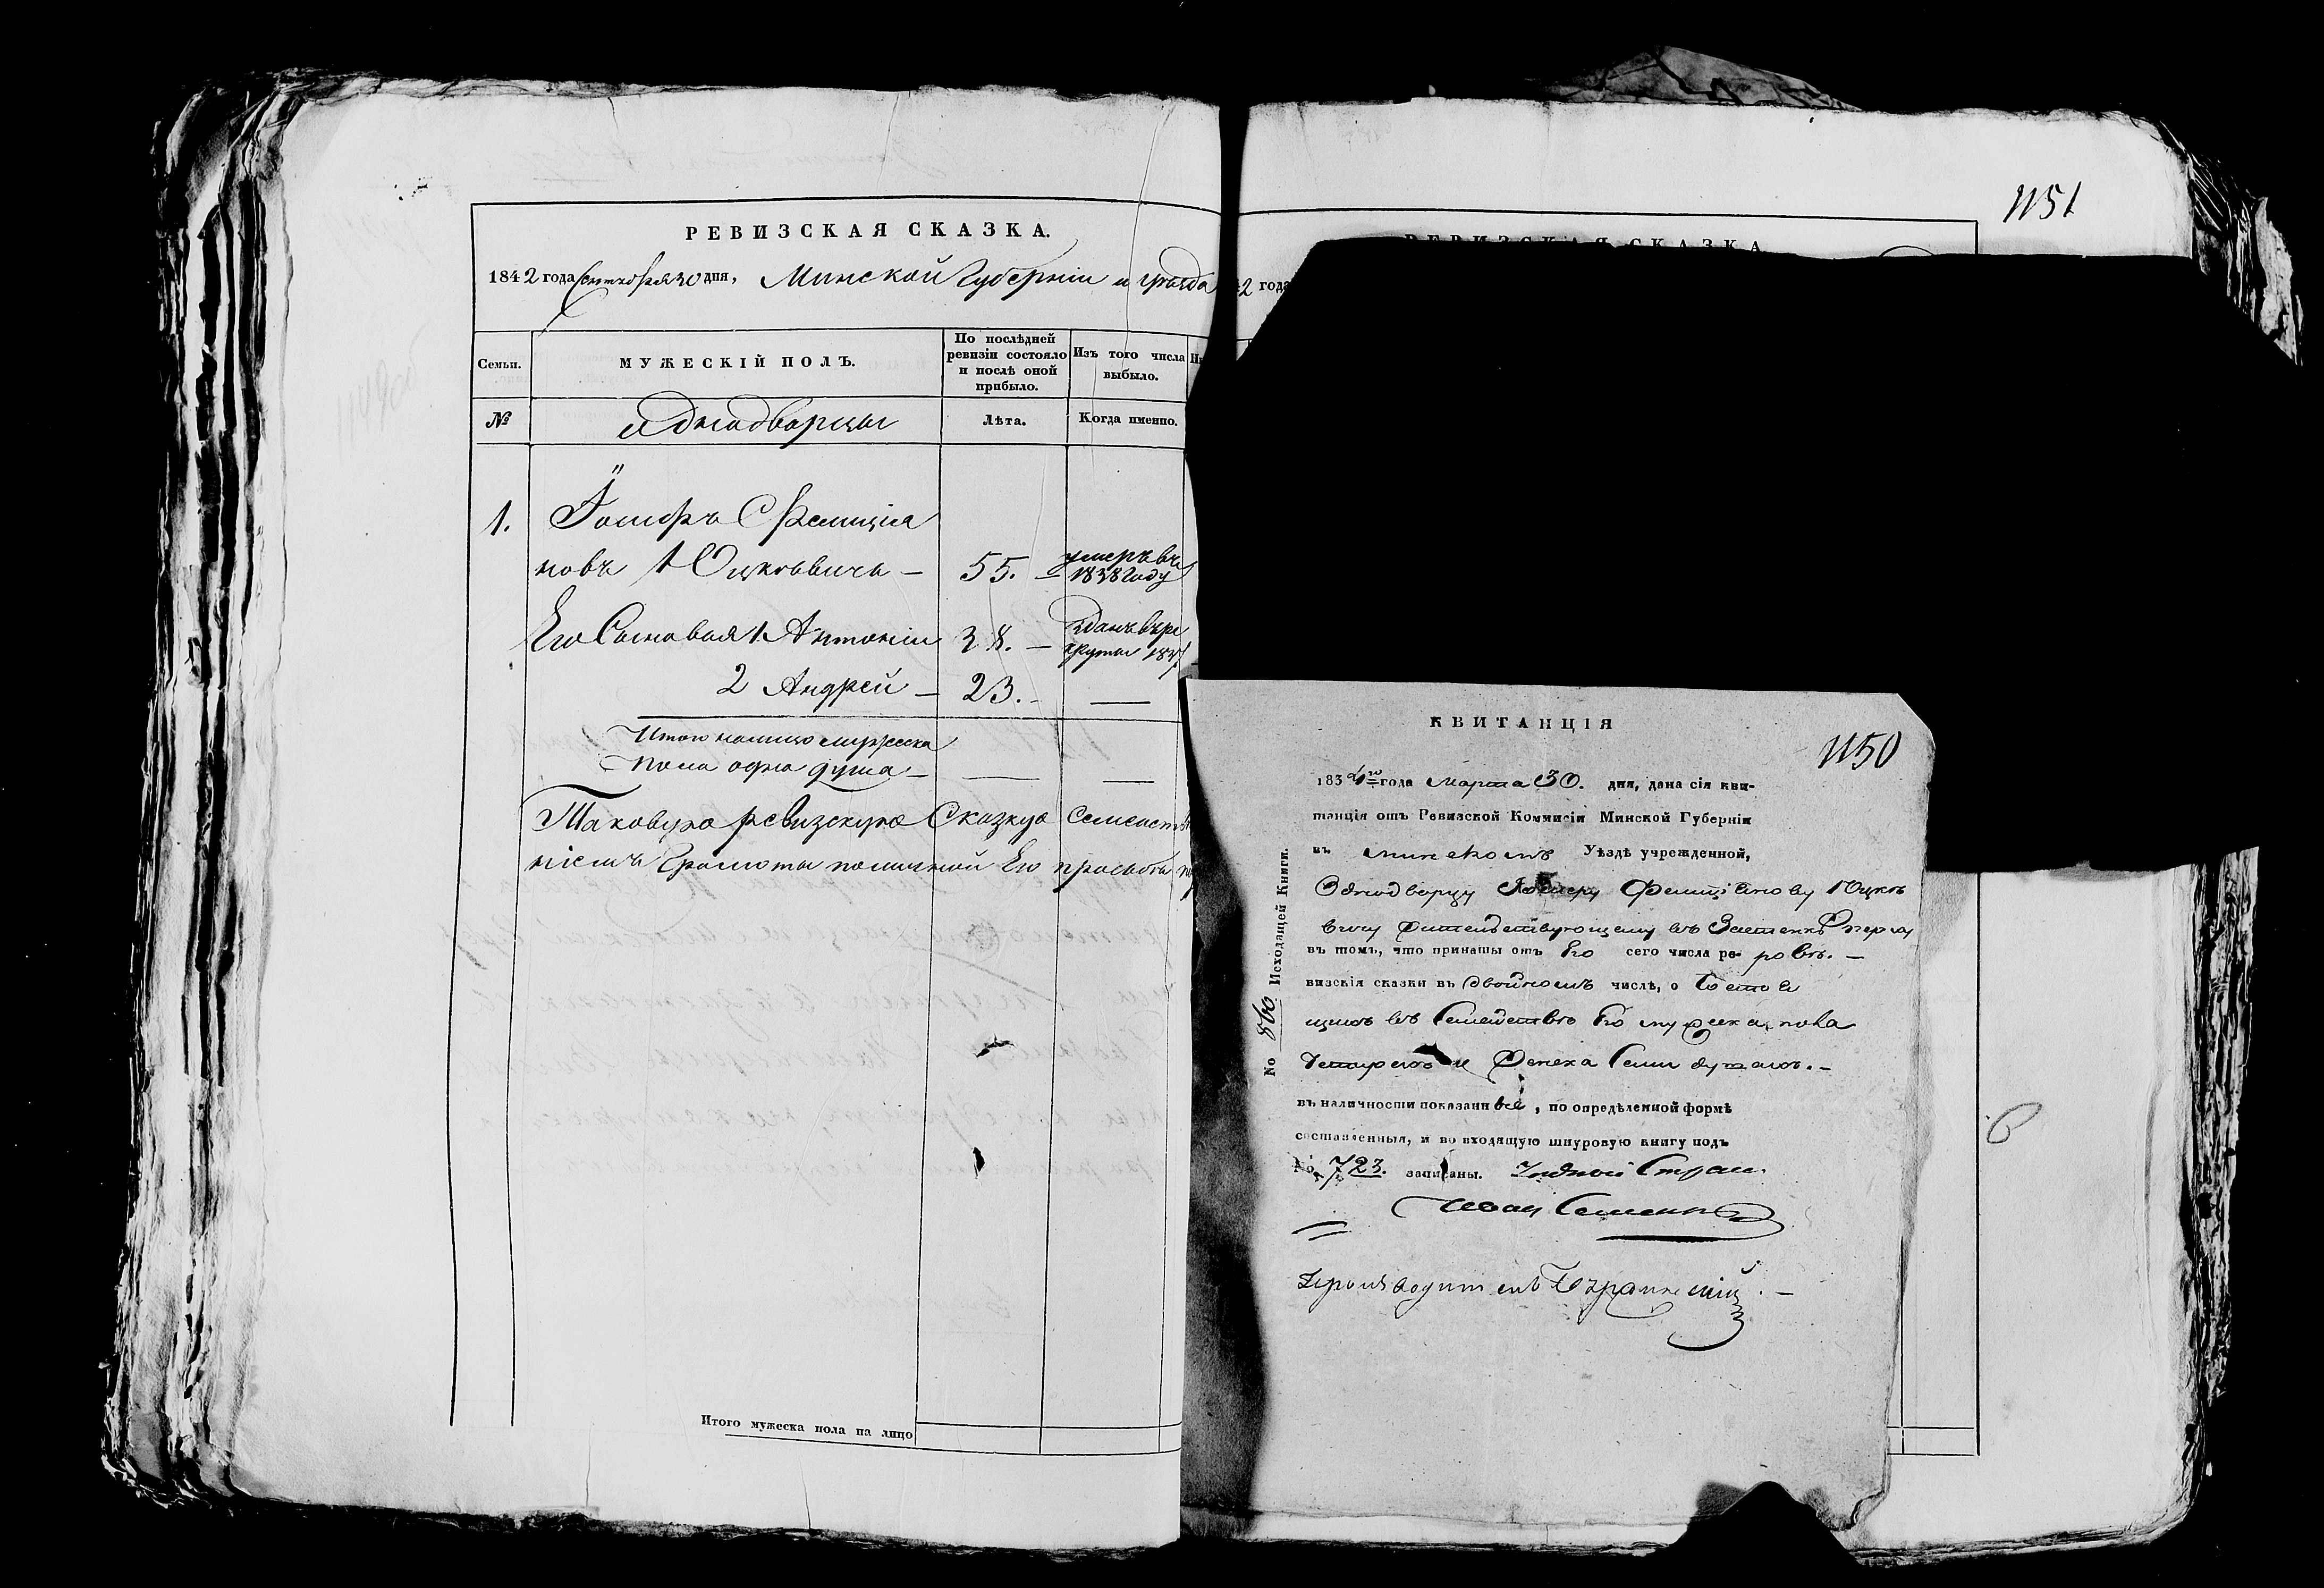 РЕВИЗСКАЯ СКАЗКА.
1842 года Сентября 30 дня, Минской Губерніи и уѣзда
Семьи.
МУЖЕСКІЙ ПОЛЪ.
По послѣдней ревизіи состояло и послѣ оной прибыло.
Изъ того числа выбыло.
№
Однодворцы
Лѣта.
Когда именно.
1. Іосифъ Фелиціа
новъ Юцкевичь — 55. — умеръ въ 1838 году
Его Сыновья 1. Антоній 38. — зданъ въ ре
круты
2 Андрей — 23. —
Итого налицо мужеска
пола одна душа —
Таковую ревизскую Сказку
ніемъ Грамоты по личной Его прозьбы
Итого мужеска пола на лицо
1151
РЕВИЗСКАЯ СКАЗКА
2 года
КВИТАНЦІЯ
1150
1834го года Марта 30. дня, дана сія кви-
танція отъ Ревизской Коммисіи Минской Губерніи
въ Минскомъ Уѣздѣ учрежденной,
Однодворцу Фелиціанову Юцке
вичу жительствующему въ Застенкѣ
въ томъ, что приняты отъ Его сего числа ре-
визскія сказки въ двойномъ числѣ, о Состоя
щихъ въ Семействѣ Его мужеска пола
Четырехъ и женска Семи душахъ. —
въ наличности показани все, по опредѣленной формѣ
составленныя, и во входящую шнуровую книгу подъ
No 723. записаны.
Иванъ
Производитель
No 860 Исходящей Книги.